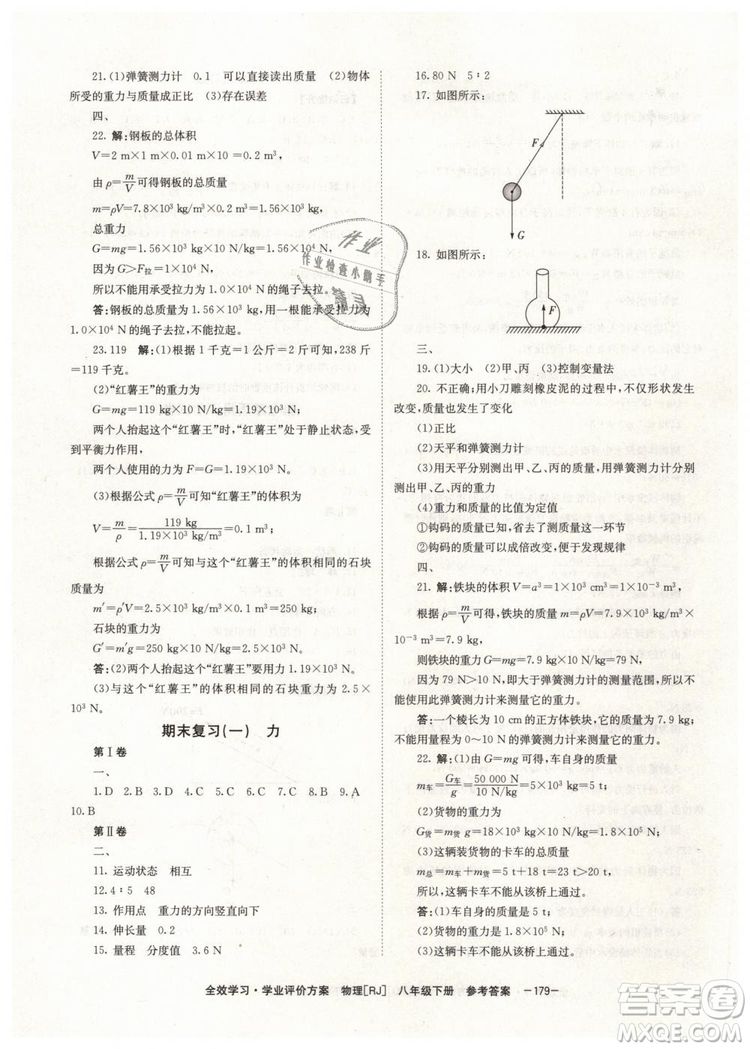 21.(1)弹簧测力计 0.1 可以直接读出质量 (2)物体
所受的重力与质量成正比 (3)存在误差
四、
22. 解:钢板的总体积
V=2 m×1 m×0.01 m×10=0.2 m³
由 ρ=m/V可得钢板的总质量
m=ρV=7.8×10³ kg/m³×0.2 m³=1.56×10³ kg
总重力
G=mg=1.56×10³ kg×10 N/kg=1.56×10⁴ N
因为 G>F拉
所以不能用能承受拉力为 1.0×10⁴ N 的绳子去拉。
答:钢板的总质量为 1.56×10³ kg,用一根能承受拉力为
1.0×10⁴ N的绳子去拉,不能吊起这些钢板。
23.119 解:(1)根据 1 千克=1 公斤=2 市斤可知,238 斤
=119 千克。
(2)“红薯王”的重力为
G=mg=119 kg×10 N/kg=1.19×10³ N
两个人抬起这个“红薯王”时,“红薯王”处于静止状态,受
到平衡力作用,
两个人使用的力为 F=G=1.19×10³ N。
(3)根据公式 ρ=m/V可知这个“红薯王”的体积为
V=m/ρ=119 kg/1.19×10³ kg/m³=0.1 m³
根据公式 ρ=m/V可知与这个“红薯王”体积相同的石块
质量为
m′=ρ′V=2.5×10³ kg/m³×0.1 m³=250 kg;
石块的重力为
G′=m′g=250 kg×10 N/kg=2.5×10³ N。
答:(2)两个人抬起这个“红薯王”要用力 1.19×10³ N。
(3)与这个“红薯王”体积相同的石块重力为 2.5×
10³ N。
期末复习(一) 力
第Ⅰ卷
一、
1.D 2.B 3.C 4.B 5.D 6.D 7.C 8.B 9.A
10.B
第Ⅱ卷
二、
11. 运动状态 相互
12.4∶5 48
13. 作用点 重力的方向竖直向下
14. 伸长量 0.2
15. 量程 分度值 3.6 N
16.80 N 5∶2
17. 如图所示:
F
G
18. 如图所示:
F
三、
19.(1)大小 (2)甲、丙 (3)控制变量法
20. 不正确;用小刀雕刻橡皮泥的过程中,不仅形状发生
改变,质量也发生了变化
(1)正比
(2)天平和弹簧测力计
(3)用天平分别测出甲、乙、丙的质量,用弹簧测力计分别
测出甲、乙、丙的重力
(4)重力与质量的比值为定值
①钩码的质量已知,省去了测质量这一环节
②钩码的质量可以成倍改变,便于发现规律
四、
21. 解:铁块的体积 V=a³=1×10⁻³ m³
根据 ρ=m/V可得,铁块的质量为 m=ρV=7.9×10³ kg/m³×
10⁻³ m³=7.9 kg,
则铁块的重力为 G=mg=7.9 kg×10 N/kg=79 N
因为 79 N>10 N,即大于弹簧测力计的测量范围,所以不
能使用此弹簧测力计来测量它的重力。
答:一个棱长为 10 cm 的正方体铁块,重力为 79 N;不能
使用量程为 0～10 N 的弹簧测力计来测量它的重力。
22. 解:(1)由 G=mg 可得,车自身的质量
m车=G车/g=50 000 N/10 N/kg=5×10³ kg=5 t
(2)货物的重力为
G货=m货 g=18×10³ kg×10 N/kg=1.8×10⁵ N
(3)这辆装货物的卡车的总质量
m总=m车+m货=5 t+18 t=23 t>20 t
所以,这辆卡车不能从该桥上通过。
答:(1)车自身的质量是 5 t;(2)货物的重力为
1.8×10⁵ N;
(3)这辆卡车不能从该桥上通过。
作业
作业检查小助手
全效学习·学业评价方案 物理[RJ] 八年级下册 参考答案 —179—